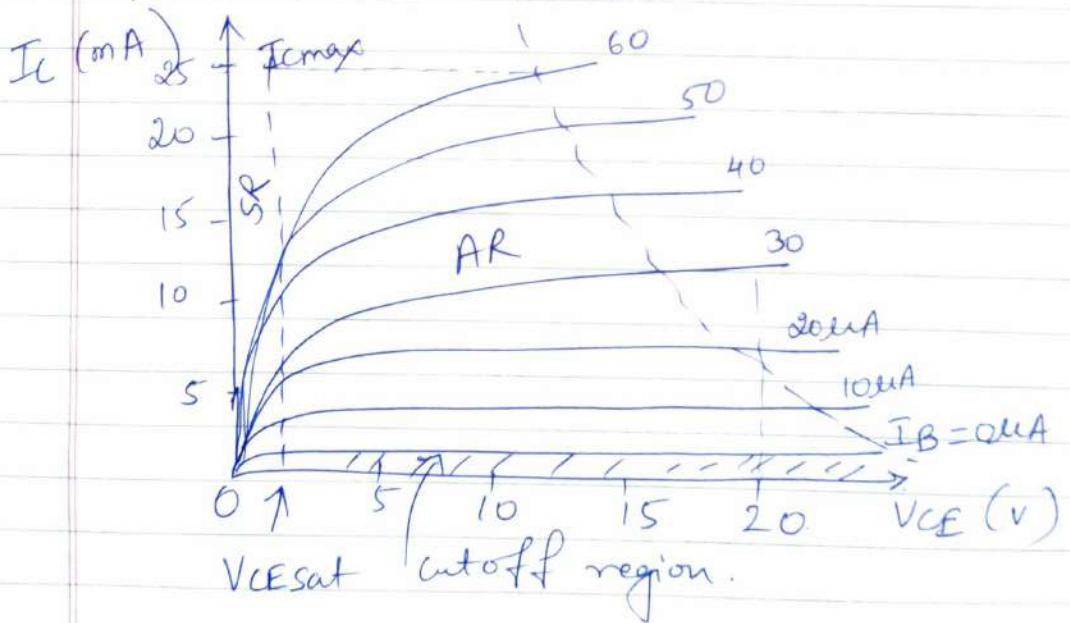 Ic (mA)
Icmax
25
20
15
10
5
0
SR
AR
60
50
40
30
20μA
10μA
IB = 0μA
5
10
15
20
VCE (V)
VCEsat
cutoff region.